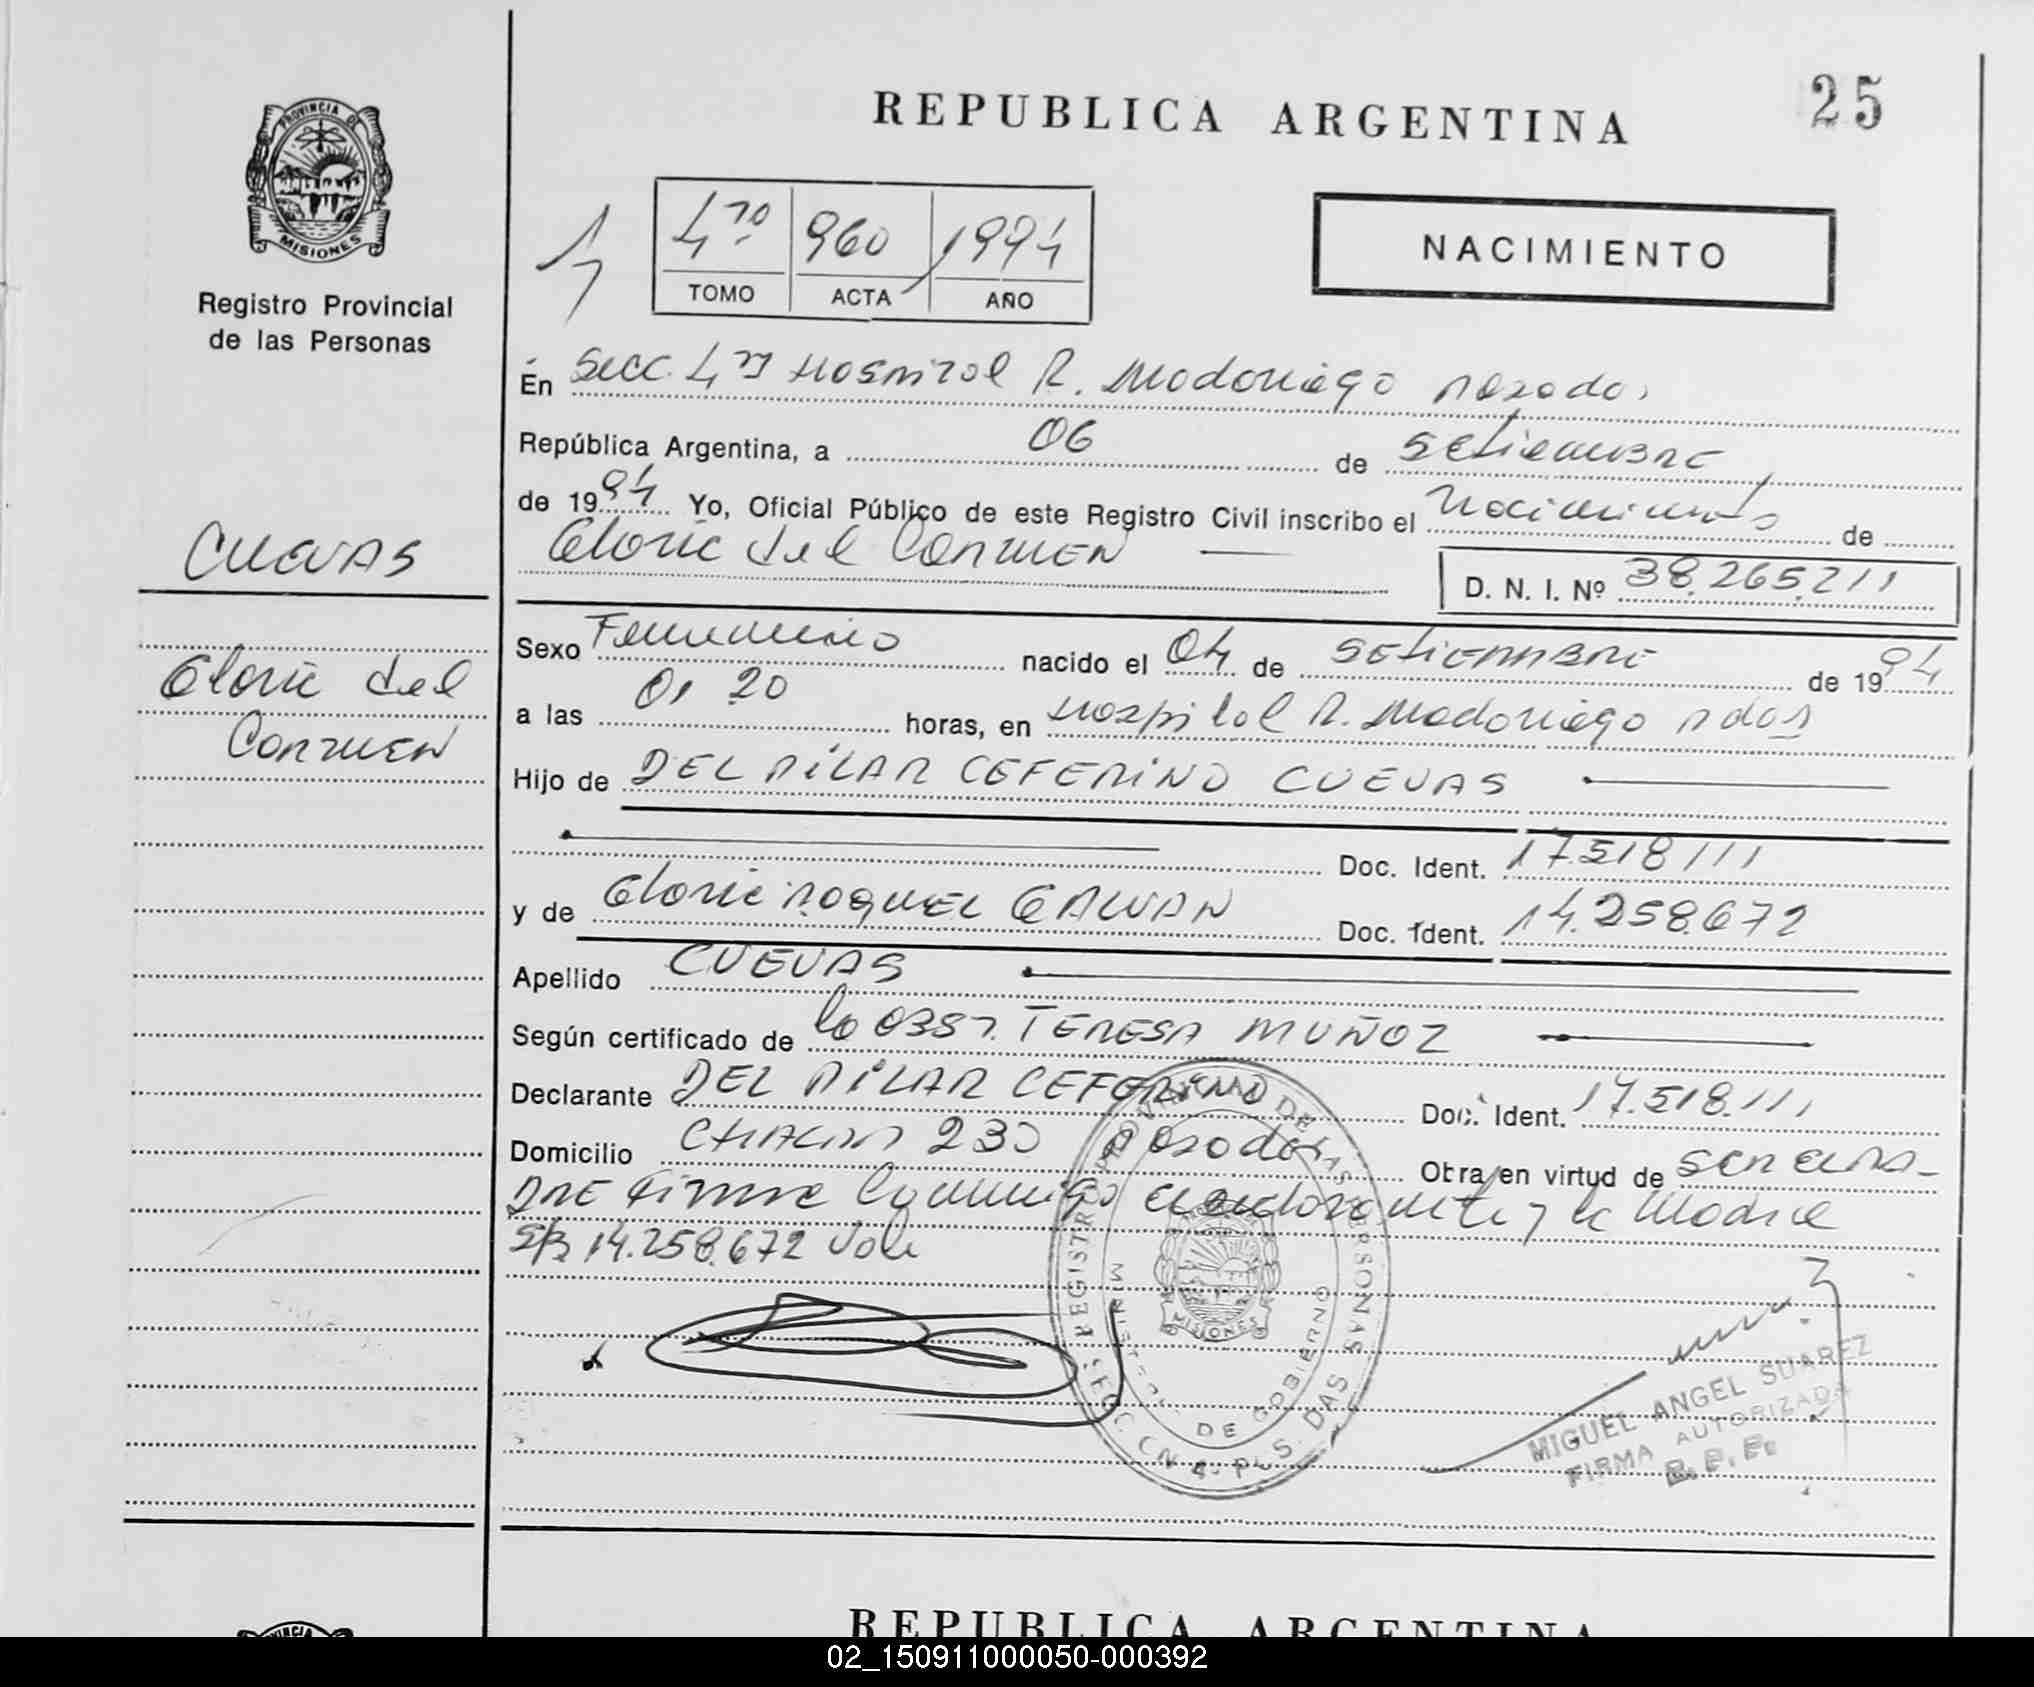 REPUBLICA ARGENTINA
25
PROVINCIA DE
MISIONES
Registro Provincial
de las Personas
4to 960 1994
TOMO ACTA AÑO
NACIMIENTO
En Secc. 4ta Hospital R. Madariaga Posadas
República Argentina, a 06 de Setiembre
de 1994 Yo, Oficial Público de este Registro Civil inscribo el Nacimiento de
Gloria del Carmen
D. N. I. Nº 38.265.211
CUEVAS
Gloria del
Carmen
Sexo Femenino nacido el 04 de Setiembre de 1994
a las 01 20 horas, en Hospital R. Madariaga Pdas
Hijo de DEL PILAR CEFERINO CUEVAS
Doc. Ident. 17.518111
y de Gloria Raquel GALVAN Doc. Ident. 14.258.672
Apellido CUEVAS
Según certificado de la Obst. TERESA MUÑOZ
Declarante DEL PILAR CEFERINO Doc. Ident. 17.518.111
Domicilio 230 Posadas Otra en virtud de ser el Pa-
dre firma Conmigo y la Madre
14.258.672 Vale
REGISTRO PROVINCIAL DE LAS PERSONAS
MINISTERIO DE GOBIERNO
MISIONES
MIGUEL ANGEL SUAREZ
FIRMA AUTORIZADA
R. P. P.
REPUBLICA ARGENTINA
02_150911000050-000392